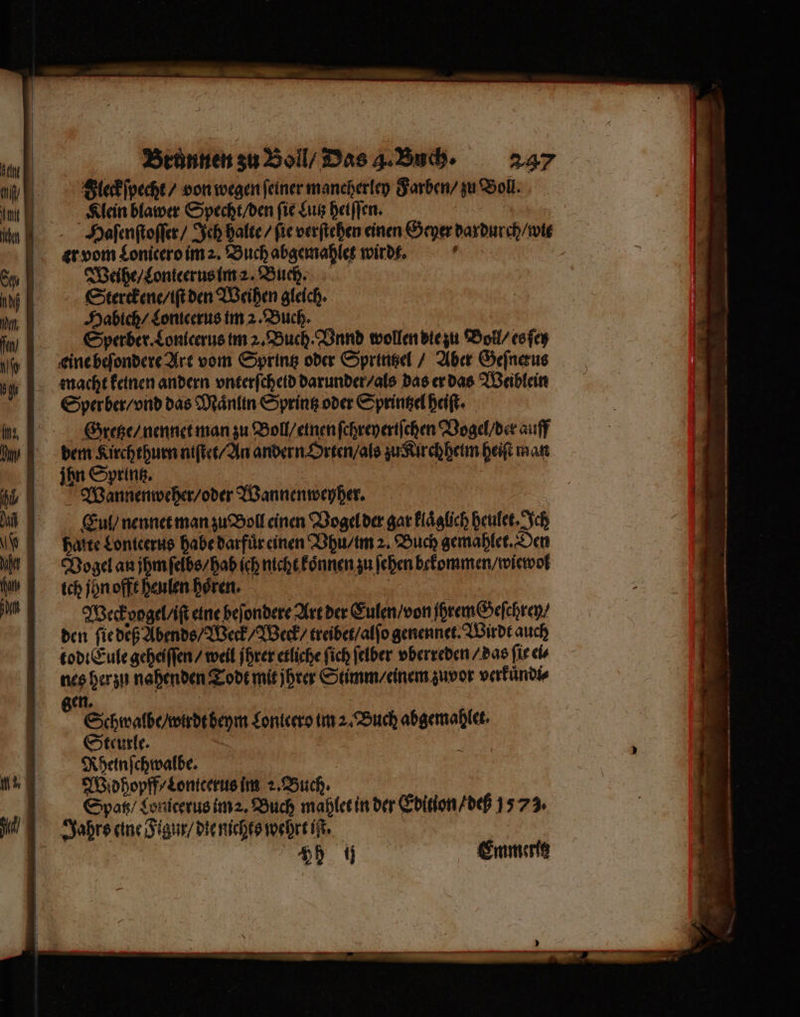 Brünnen zu Boll/ Das 4. Buch. 247
Fleckſpecht / von wegen ſeiner mancherley Farben/ zu Boll.
Klein blawer Specht/den ſie Lutz heiſſen.
Haſenſtoſſer/ Jch halte / ſie verſtehen einen Geyer dardurch/wie
er vom Lonicero im 2. Buch abgemahlet wirdt.
Weihe/Lonicerus im 2. Buch.
Sterckene/iſt den Weihen gleich.
Habich/ Lonicerus im 2. Buch.
Sperber. Lonicerus im 2. Buch. Vnnd wollen die zu Boll/ es ſey
eine beſondere Art vom Sprintz oder Sprintzel / Aber Geſnerus
macht keinen andern vnterſcheid darunder/als das er das Weiblein
Sperber/vnd das Mänlin Sprintz oder Sprintzel heiſt.
Gretze/ nennet man zu Boll/ einen ſchreyeriſchen Vogel/der auff
dem Kirchthurn niſtet/An andern Orten/als zu Kirchheim heiſt man
jhn Sprintz.
Wannenweher/oder Wannenweyher.
Eul/ nennet man zu Boll einen Vogel der gar kläglich heulet. Jch
halte Lonicerus habe darfür einen Vhu/im 2. Buch gemahlet. Den
Vogel an jhm ſelbs/hab ich nicht können zu ſehen bekommen/wiewol
ich jhn offt heulen hören.
Weckvogel/iſt eine beſondere Art der Eulen/von jhrem Geſchrey/
den ſie deß Abends/Weck/Weck/ treibet/alſo genennet. Wirdt auch
todt Eule geheiſſen / weil jhrer etliche ſich ſelber vberreden / das ſie ei-
nes herzu nahenden Todt mit jhrer Stimm/einem zuvor verkündi-
gen.
Schwalbe/wirdt beym Lonicero im 2. Buch abgemahlet.
Steurle.
Rheinſchwalbe.
Widhopff/Lonicerus im 2. Buch.
Spatz/ Lonicerus im 2. Buch mahlet in der Edition /deß 1573.
Jahrs eine Figur/ die nichts wehrt iſt.
hh ij Emmeritz